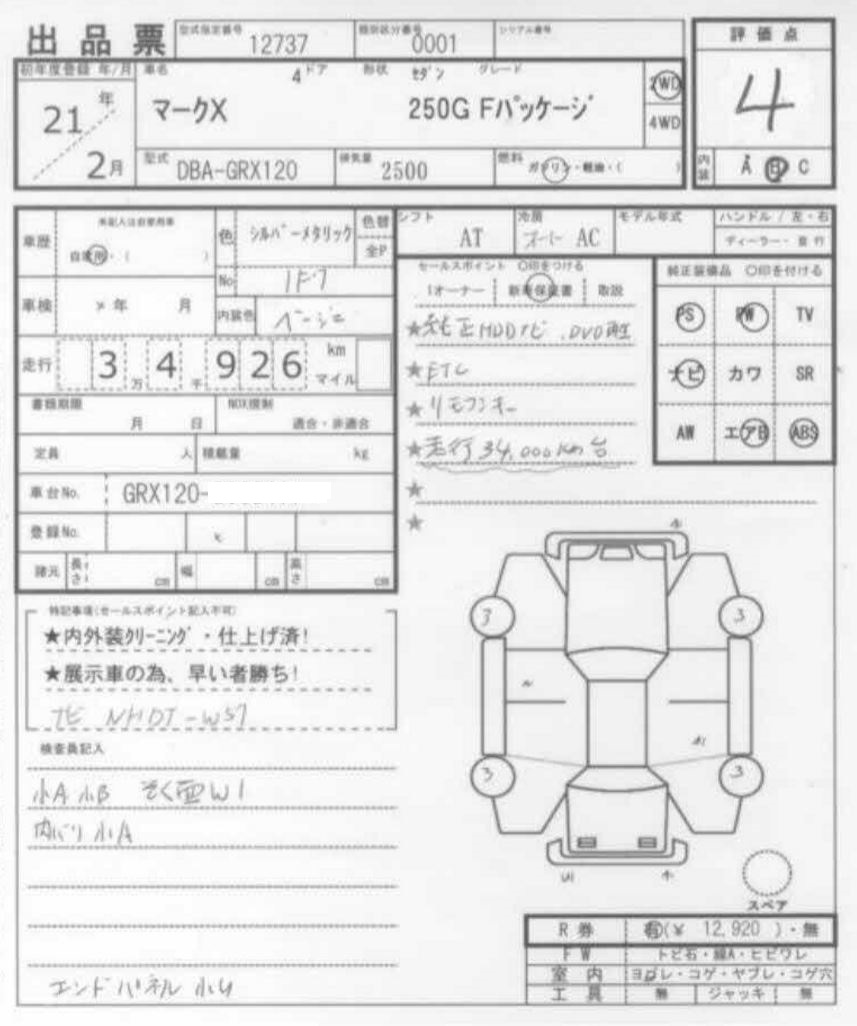 出品票
型式指定番号 12737 類別区分番号 0001 シリアル番号
評価点
4
内装 A B C
初年度登録 年/月 車名 4ドア 形状 セダン グレード
21年 2月
マークX 250G Fパッケージ
2WD
4WD
型式 DBA-GRX120 排気量 2500 燃料 ガソリン・軽油・( )
車歴 未記入は自家用車
自家用・( )
色 シルバーメタリック 色替 全P
No 1F7
車検 × 年 月 内装色 ベージュ
走行 3万4千926 km マイル
書類期限 月 日 NOX規制 適合・非適合
定員 人 積載量 kg
車台No. GRX120-
登録No.
諸元 長さ cm 幅 cm 高さ cm
シフト AT 冷房 オート AC モデル年式 ハンドル / 左・右
ディーラー・並行
セールスポイント ○印をつける
1オーナー 新車保証書 取説
★純正HDDナビ.DVD再生
★ETC
★リモコンキー
★走行34,000km台
★
★
純正装備品 ○印を付ける
PS PW TV
ナビ カワ SR
AW エアB ABS
特記事項(セールスポイント記入不可)
★内外装クリーニング・仕上げ済!
★展示車の為、早い者勝ち!
ナビ NHDT-W57
検査員記入
小A 小B そく面W1
内バリ小A
エンドパネル小U
3 3
3 3
A1
U1
スペア
R券 有(¥ 12,920 )・無
FW トビ石・線A・ヒビワレ
室内 ヨゴレ・コゲ・ヤブレ・コゲ穴
工具 無 ジャッキ 無